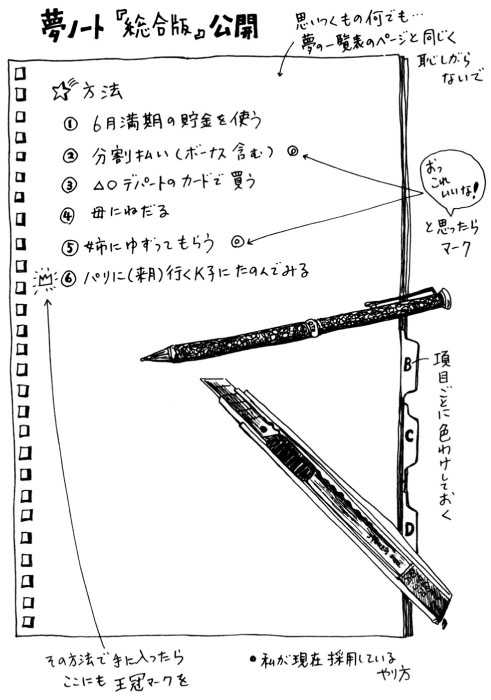 夢ノート『総合版』公開
思いつくもの何でも…
夢の一覧表のページと同じく
恥しがら
ないで
☆方法
① 6月満期の貯金を使う
② 分割払い(ボーナス含む) ◎
③ △○デパートのカードで買う
④ 母にねだる
⑤ 姉にゆずってもらう ◎
⑥ パリに(来月)行くK子にたのんでみる
おっ
これ
いいな!
と思ったら
マーク
B
C
D
項目ごとに色わけしておく
その方法で手に入ったら
ここにも王冠マークを
●私が現在採用している
やり方